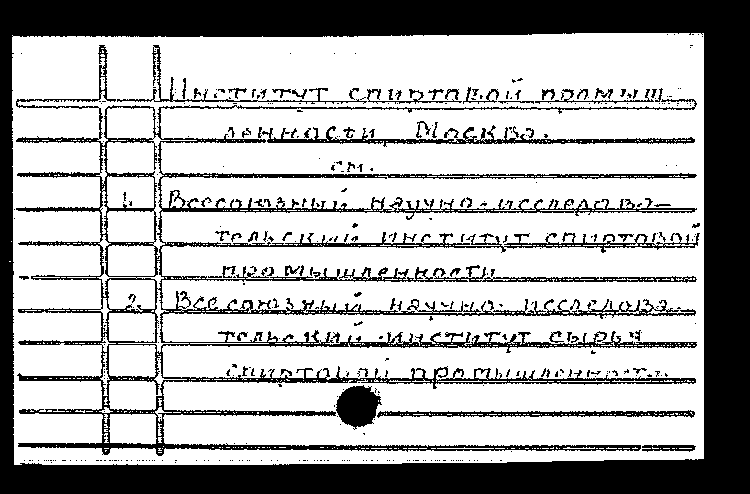 Институт спиртовой промыш-
ленности, Москва.
см.
1. Всесоюзный научно-исследова-
тельский институт спиртовой
промышленности
2. Всесоюзный научно-исследова-
тельский институт сырья
спиртовой промышленности.